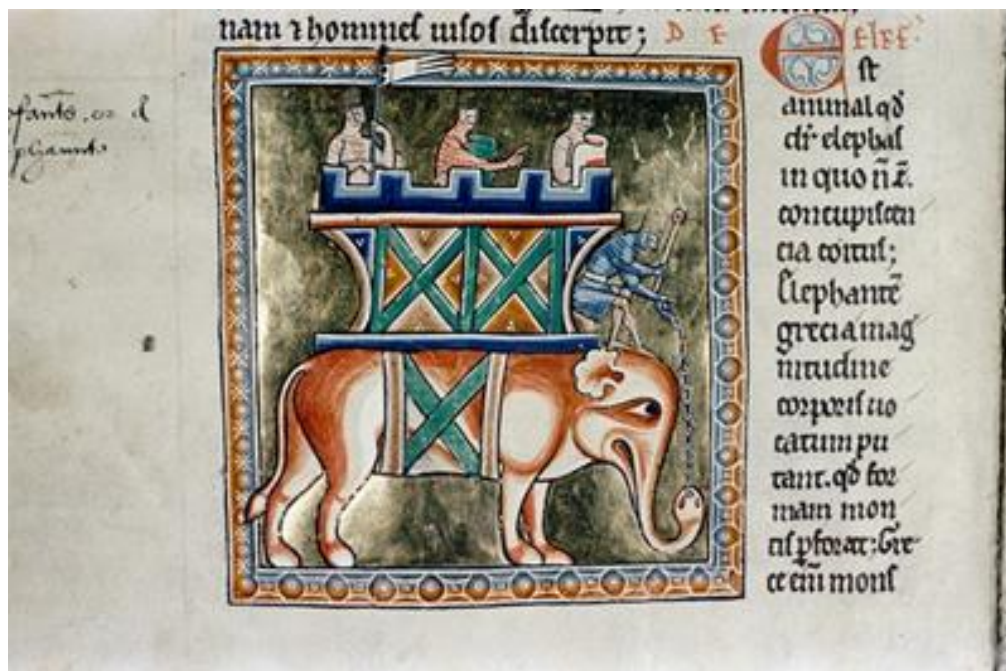 nam ⁊ homines uisos discerpit; D E
ELEF.
Est
animal qđ
dr̄ elephas
in quo ñ ē.
concupiscen
cia coitus;
Elephantē
greci a mag
nitudine
corporis uo
catum pu
tant. qđ for
mam mon
tis p̄forat: Gre
ce eni mons